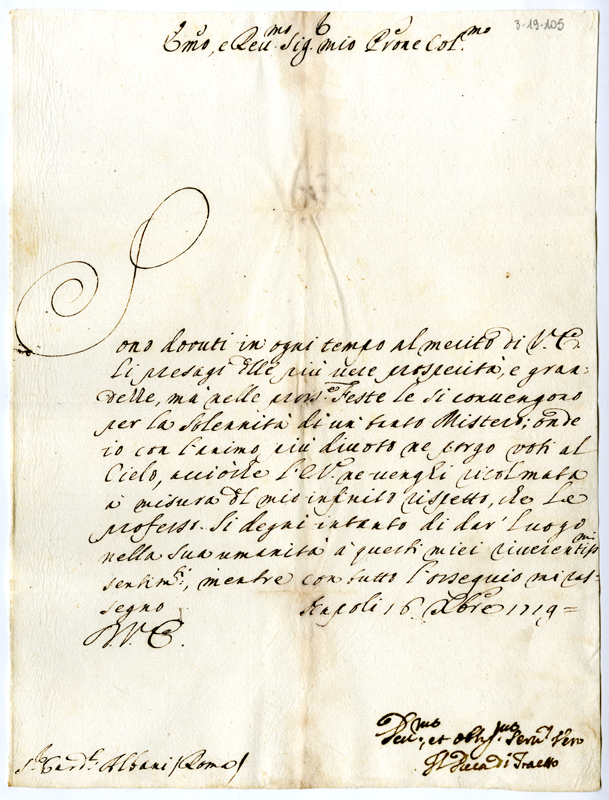 3-19-105
Emo, e Reu.mo Sig.r mio Prone Col.mo
Sono douuti in ogni tempo al merito di V. E.
li presagi d'lle più uere prosperità, e gran-
dezze, mà nelle pros.e Feste le si conuengono
per la Solennità di un tanto Mistero; onde
io con l'animo più diuoto ne porgo uoti al
Cielo, acciòche l'E. V. ne uenghi ricolmata
à misura d'l mio infinito rispetto, che Le
professo. Si degni intanto di dar' luogo
nella sua umanità à questi miei riuerentiss.mi
sentim.ti, mentre con tutto l'ossequio mi ras-
segno Napoli 16. Xbre 1719=
D. V. E.
Deu.mo, et obblig.mo Seru.r Vero
Il Duca di Traetto
S.r Card.l Albani (Roma)